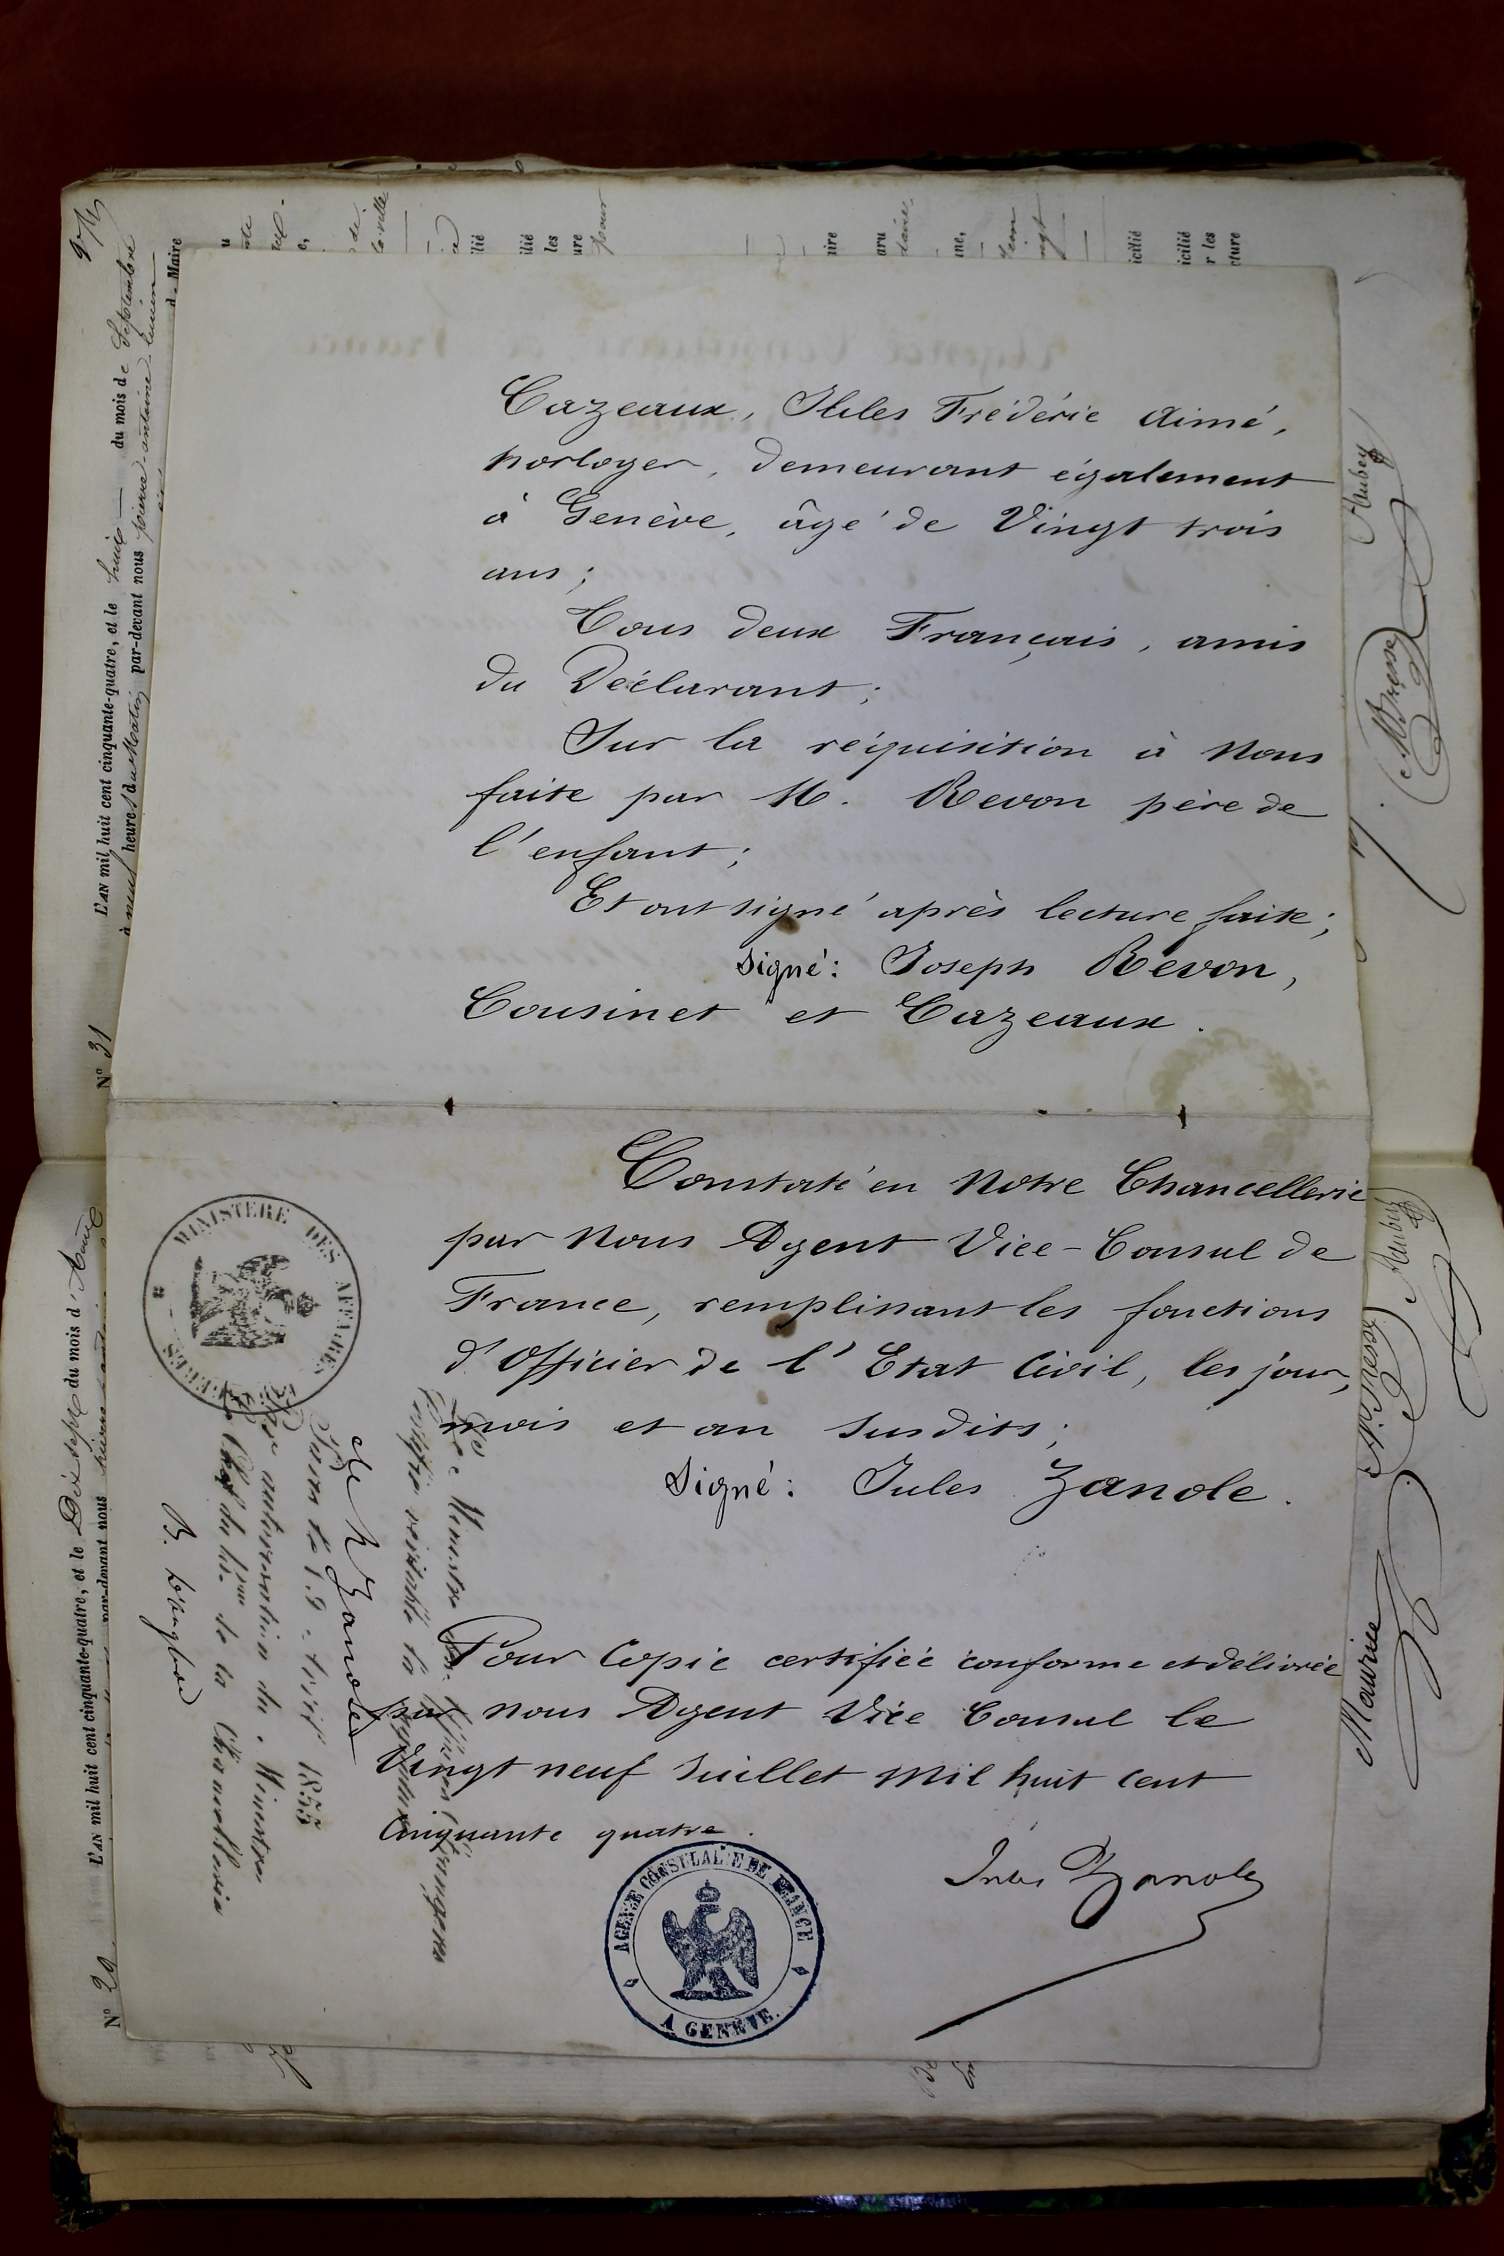 Cazeaux, Jules Frédéric Aimé,
horloger, demeurant également
à Genève, âgé de Vingt trois
ans;
Tous deux Français, amis
du Déclarant;
Sur la réquisition à Nous
faite par M. Revon père de
l'enfant;
Et ont signé après lecture faite;
signé: Joseph Revon,
Cousinet et Cazeaux.
Constaté en Notre Chancellerie
par Nous Agent Vice-Consul de
France, remplissant les fonctions
d'Officier de l'Etat Civil, les jour,
mois et an susdits;
Signé: Jules Zanole.
Pour Copie certifiée conforme et délivrée
par nous Agent Vice Consul le
Vingt neuf Juillet Mil huit cent
Cinquante quatre.
Jules Zanole
AGENCE CONSULAIRE DE FRANCE
A GENEVE.
MINISTERE DES AFFAIRES
Le Ministre des Affaires Etrangères
certifie véritable la signature
de M Zanole
1855
Par autorisation du Ministre
Le Chef du Bau de la Chancellerie
N° 31
L'AN mil huit cent cinquante-quatre, et le huit du mois de Septembre
à neuf heures du Matin par-devant nous pierre-antoine-lucien
d. Maire
N° 20
L'AN mil huit cent cinquante-quatre, et le Dix sept du mois d'Août
par-devant nous
Aubey
Aubey
Maurice